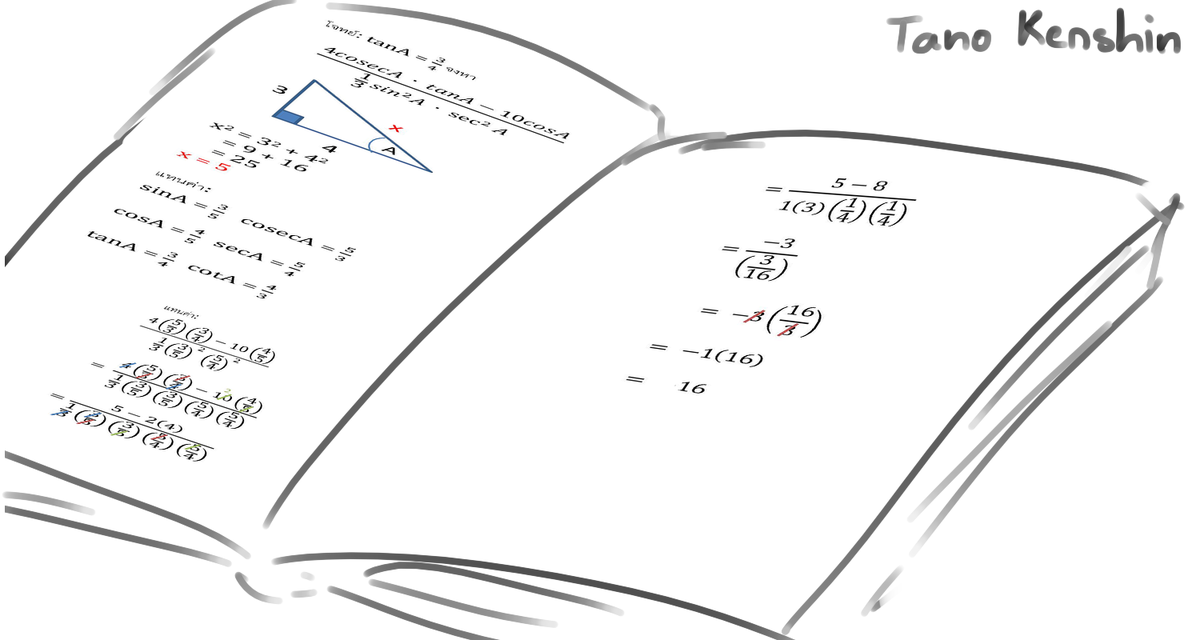 Tano Kenshin
โจทย์: tanA = 3/4 จงหา
(4cosecA · tanA − 10cosA)/(1/3 sin²A · sec²A)
3
x
4
A
x² = 3² + 4²
= 9 + 16
= 25
x = 5
แทนค่า:
sinA = 3/5 cosecA = 5/3
cosA = 4/5 secA = 5/4
tanA = 3/4 cotA = 4/3
แทนค่า:
(4(5/3)(3/4) − 10(4/5))/(1/3(3/5)²(5/4)²)
= (4(5/3)(3/4) − 10(4/5))/(1/3(3/5)(3/5)(5/4)(5/4)) 2
= (5 − 2(4))/(1/3(3/5)(3/5)(5/4)(5/4))
= (5 − 8)/(1(3)(1/4)(1/4))
= −3/(3/16)
= −3(16/3)
= −1(16)
= 16